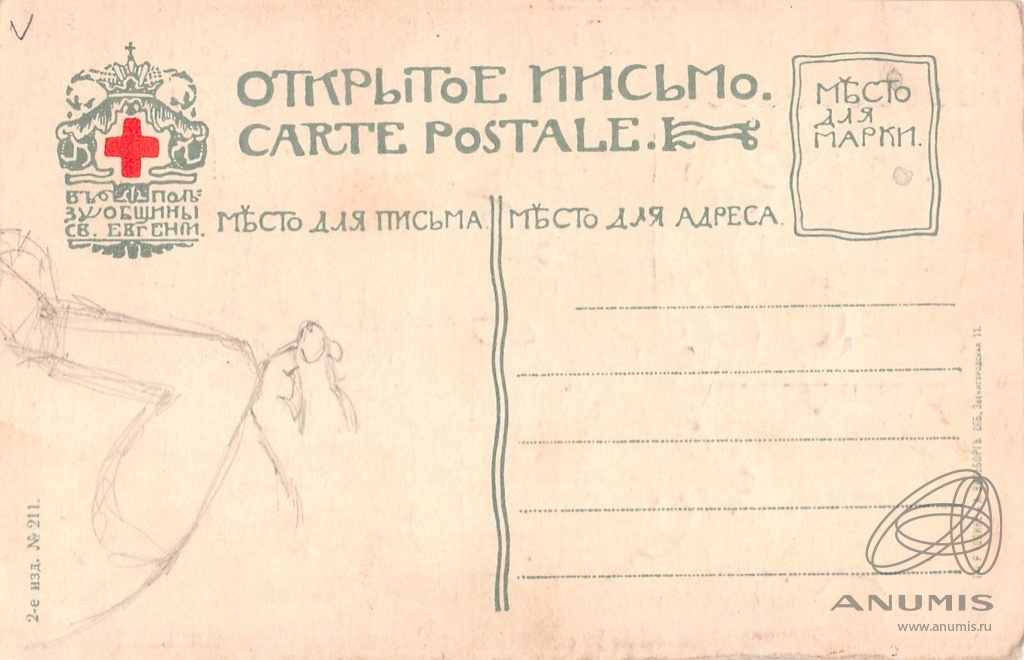 ОТКРЫТОЕ ПИСЬМО.
CARTE POSTALE.
МѢСТО
ДЛЯ
МАРКИ.
ВЪ ПОЛЬ=
ЗУ ОБЩИНЫ
СВ. ЕВГЕНІИ.
МѢСТО ДЛЯ ПИСЬМА.
МѢСТО ДЛЯ АДРЕСА.
2-е изд. № 211.
СПБ., Звенигородская 11.
ANUMIS
www.anumis.ru